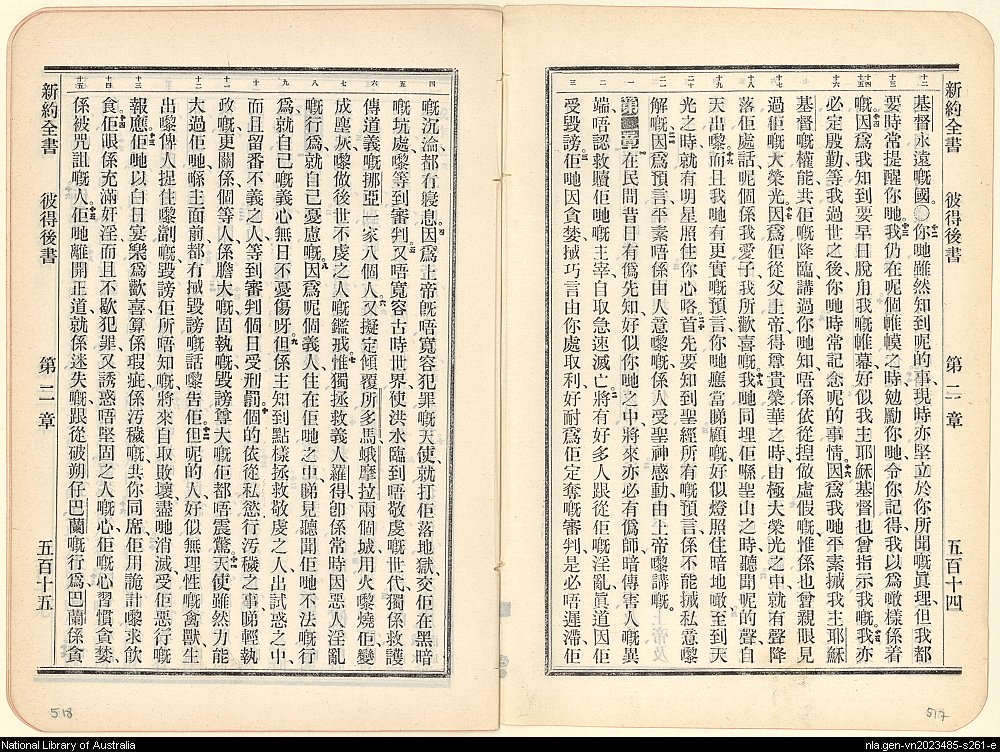 新約全書 彼得後書 第二章 五百十四
基督永遠嘅國○你哋雖然知到呢的事現時亦堅立於你所聞嘅眞理但我都
要時常提醒你哋我仍在呢個帷幙之時勉勵你哋令你記得我以為噉樣係着
嘅因爲我知到要早日脫甪我嘅帷幕好似我主耶穌基督也曾指示我嘅我亦
必定殷勤等我過世之後你哋時常記念呢的事情因爲我哋平素搣我主耶穌
基督嘅權能共佢嘅降臨講過你哋知唔係依從揑做虛假嘅惟係也曾親眼見
過佢嘅大榮光因爲佢從父上帝得尊貴榮華之時由極大榮光之中就有聲降
落佢處話呢個係我愛子我所歡喜嘅我哋同理佢喺聖山之時聽聞呢的聲自
天出嚟而且我哋有更實嘅預言你哋應當睇顧嘅好似燈照住暗地噉至到天
光之時就有明星照住你心咯首先要知到聖經所有嘅預言係不能搣私意嚟
解嘅因爲預言平素唔係由人意嚟嘅係人受聖神感動由上帝嚟講嘅
第二章在民間昔日有僞先知好似你哋之中將來亦必有僞師暗傳害人嘅異
端唔認救贖佢哋嘅主宰自取急速滅亡將有好多人跟從佢嘅淫亂眞道因佢
受毀謗佢哋因貪婪搣巧言由你處取利好耐爲佢定奪嘅審判是必唔遲滯佢
嘅沉淪都冇寢息因爲上帝旣唔寬容犯罪嘅天使就打佢落地獄交佢在黑暗
嘅坑處嚟等到審判又唔寬容古時世界使洪水臨到唔敬虔嘅世代獨係救護
傳道義嘅挪亞一家八個人又擬定傾覆所多馬蛾摩拉兩個城用火嚟燒佢變
成塵灰嚟做後世不虔之人嘅鑑戒惟獨拯救義人羅得卽係常時因惡人淫亂
嘅行爲就自己憂慮嘅因爲呢個義人住在佢哋之中睇見聽聞佢哋不法嘅行
爲就自己嘅義心無日不憂傷呀但係主知到點樣拯救敬虔之人出試惑之中
而且留番不義之人等到審判個日受刑罰個的依從私慾行汚穢之事睇輕執
政嘅更關係個等人係膽大嘅固執嘅毀謗尊大嘅佢都唔震驚天使雖然力能
大過佢哋喺主面前都冇搣毀謗嘅話嚟告佢但呢的人好似無理性嘅禽獸生
出嚟俾人捉住嚟劏嘅毀謗佢所唔知嘅將來自取敗壞盡哋消滅受佢惡行嘅
報應佢哋以白日宴樂爲歡喜算係瑕疵係汚穢嘅共你同席佢用詭計嚟求飮
食佢眼係充滿奸淫而且不歇犯罪又誘惑唔堅固之人嘅心佢嘅心習慣貪婪
係被咒詛嘅人佢哋離開正道就係迷失嘅跟從破朔仔巴蘭嘅行爲巴蘭係貪
新約全書 彼得後書 第二章 五百十五
518
517
National Library of Australia
nla.gen-vn2023485-s261-e